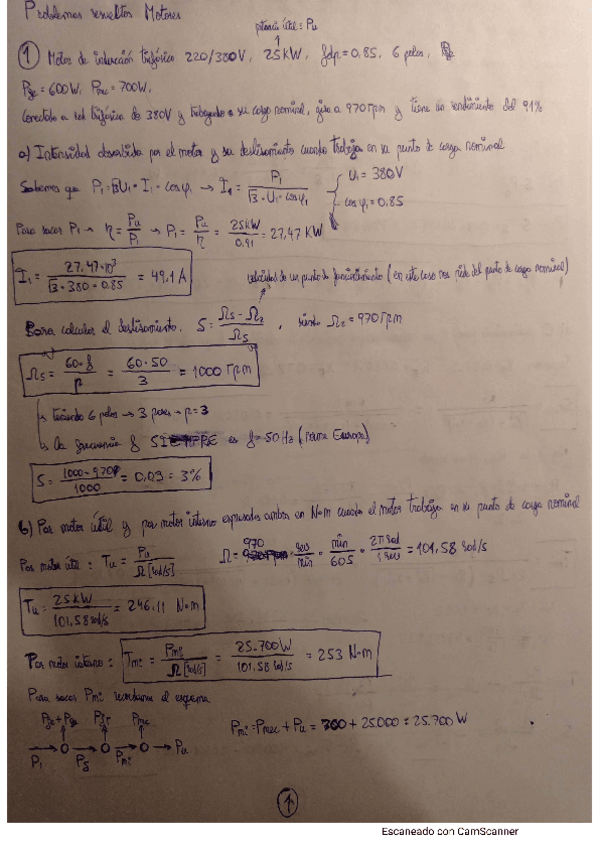 Problemas resueltos Motores
potencia útil = Pu
① Motor de inducción trifásico 220/380V, 25KW, fdp=0,85, 6 polos,
Pfe=600W, Pmec=700W.
Conectado a red trifásica de 380V y trabajando a su carga nominal, gira a 970rpm y tiene un rendimiento del 91%
a) Intensidad absorbida por el motor y su deslizamiento cuando trabaja en su punto de carga nominal
Sabemos que P₁=√3U₁·I₁·cosφ₁ → I₁ = P₁/(√3·U₁·cosφ₁) { U₁=380V
cosφ₁=0.85
Para sacar P₁ → η = Pu/P₁ → P₁ = Pu/η = 25KW/0.91 = 27,47 KW
I₁ = 27.47·10³/(√3·380·0.85) = 49.1 A
velocidad de un punto de funcionamiento (en este caso nos pide del punto de carga nominal)
Para calcular el deslizamiento. S = (Ωs-Ω₂)/Ωs, siendo Ω₂=970rpm
Ωs = 60·f/p = 60·50/3 = 1000 rpm
teniendo 6 polos → 3 pares → p=3
La frecuencia f SIEMPRE es f=50Hz (Europa)
S = (1000-970)/1000 = 0,03 = 3%
b) Par motor útil y par motor interno expresados ambos en N·m cuando el motor trabaja en su punto de carga nominal
Par motor útil: Tu = Pu/Ω[rad/s] Ω = 970 rev/min · min/60s · 2π rad/1 rev = 101,58 rad/s
Tu = 25KW/101,58rad/s = 246,11 N·m
Par motor interno: Tmi = Pmi/Ω[rad/s] = 25.700W/101,58 rad/s = 253 N·m
Para sacar Pmi recordamos el esquema
Pmec
P₁ Pmi Pu
Pmi=Pmec+Pu = 700+25.000 = 25.700 W
1
Escaneado con CamScanner